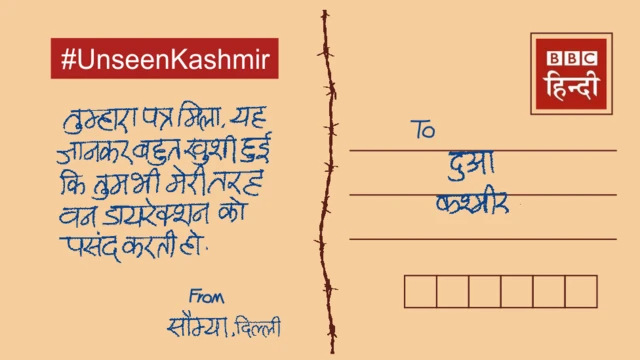 #UnseenKashmir
तुम्हारा पत्र मिला, यह
जानकर बहुत खुशी हुई
कि तुम भी मेरी तरह
वन डायरेक्शन को
पसंद करती हो.
From
सौम्या, दिल्ली
BBC
हिन्दी
To
दुआ
कश्मीर